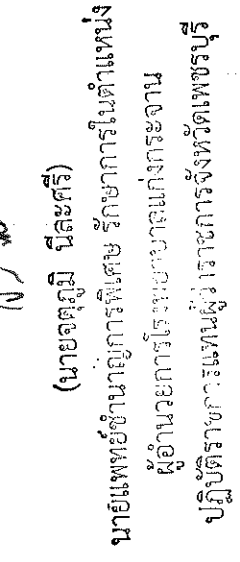 (นายจตุภูมิ นีละศรี)
นายแพทย์ชำนาญการพิเศษ รักษาการในตำแหน่ง
ผู้อำนวยการโรงพยาบาลแก่งกระจาน
ปฏิบัติราชการแทนผู้ว่าราชการจังหวัดเพชรบุรี